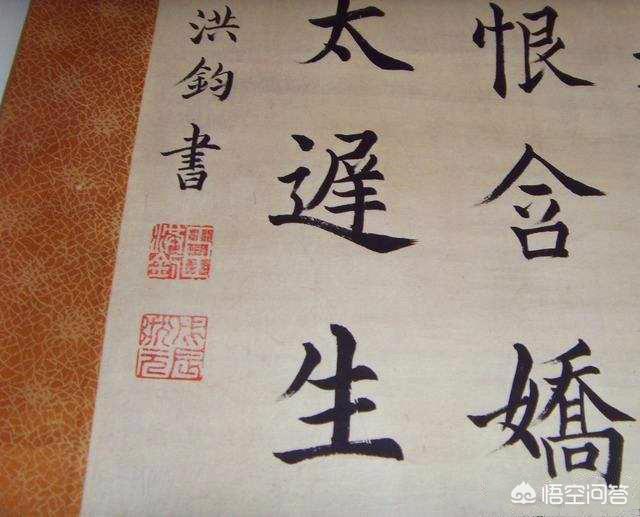 恨含嬌
太遲生
洪鈞書
悟空问答